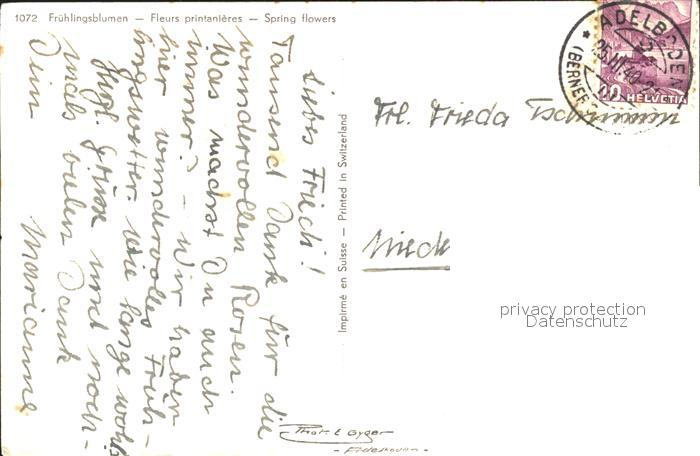 1072 Frühlingsblumen — Fleurs printanières — Spring flowers
Liebes Friedi!
Tausend Dank für die
wundervollen Rosen.
Was machst Du auch
immer? – Wir haben
hier wundervolles Früh-
lingswetter. Wie lange wohl?
Hrzl. Grüsse und noch-
mals vielen Dank
Dein Marianne
Imprimé en Suisse — Printed in Switzerland
Phot. E. Gyger
- Adelboden -
ADELBODEN
(BERNER
HELVETIA
Frl. Frieda
privacy protection
Datenschutz